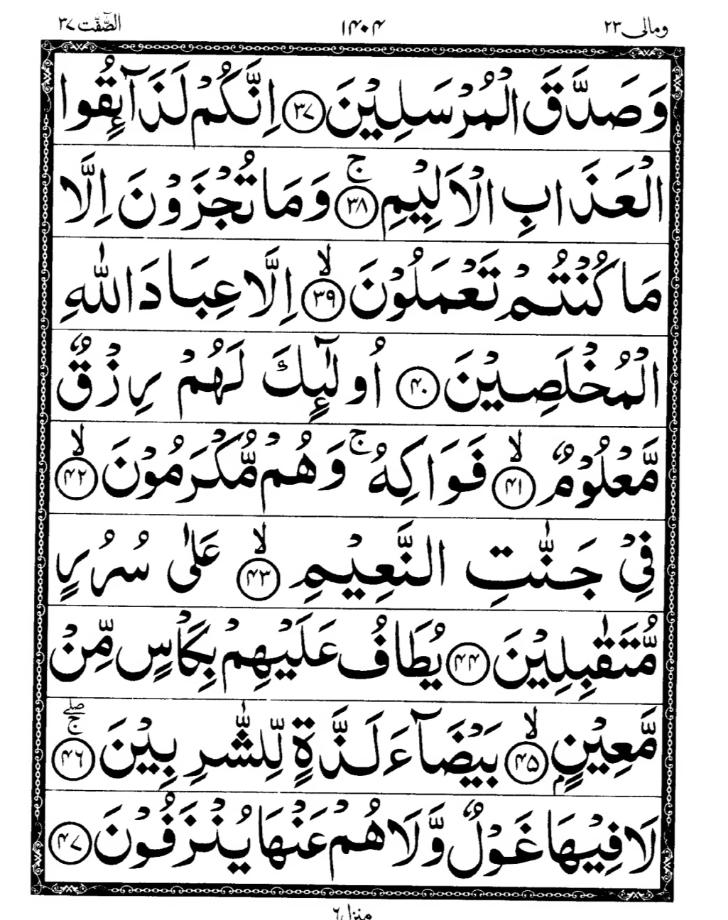 ومالى ٢٣ ١٤٠٤ الصّٰٓفّٰت ٣٧
وَصَدَّقَ الْمُرْسَلِيْنَ ﴿٣٧﴾ اِنَّكُمْ لَذَآئِقُوا
الْعَذَابِ الْاَلِيْمِ ۚ﴿٣٨﴾ وَمَا تُجْزَوْنَ اِلَّا
مَا كُنْتُمْ تَعْمَلُوْنَ ۙ﴿٣٩﴾ اِلَّا عِبَادَ اللّٰهِ
الْمُخْلَصِيْنَ ﴿٤٠﴾ اُولٰٓئِكَ لَهُمْ رِزْقٌ
مَّعْلُوْمٌ ۙ﴿٤١﴾ فَوَاكِهُ ۚ وَهُمْ مُّكْرَمُوْنَ ۙ﴿٤٢﴾
فِيْ جَنّٰتِ النَّعِيْمِ ۙ﴿٤٣﴾ عَلٰى سُرُرٍ
مُّتَقٰبِلِيْنَ ﴿٤٤﴾ يُطَافُ عَلَيْهِمْ بِكَاْسٍ مِّنْ
مَّعِيْنٍۭ ۙ﴿٤٥﴾ بَيْضَآءَ لَذَّةٍ لِّلشّٰرِبِيْنَ ۚۖ﴿٤٦﴾
لَا فِيْهَا غَوْلٌ وَّلَا هُمْ عَنْهَا يُنْزَفُوْنَ ﴿٤٧﴾
منزل ٦